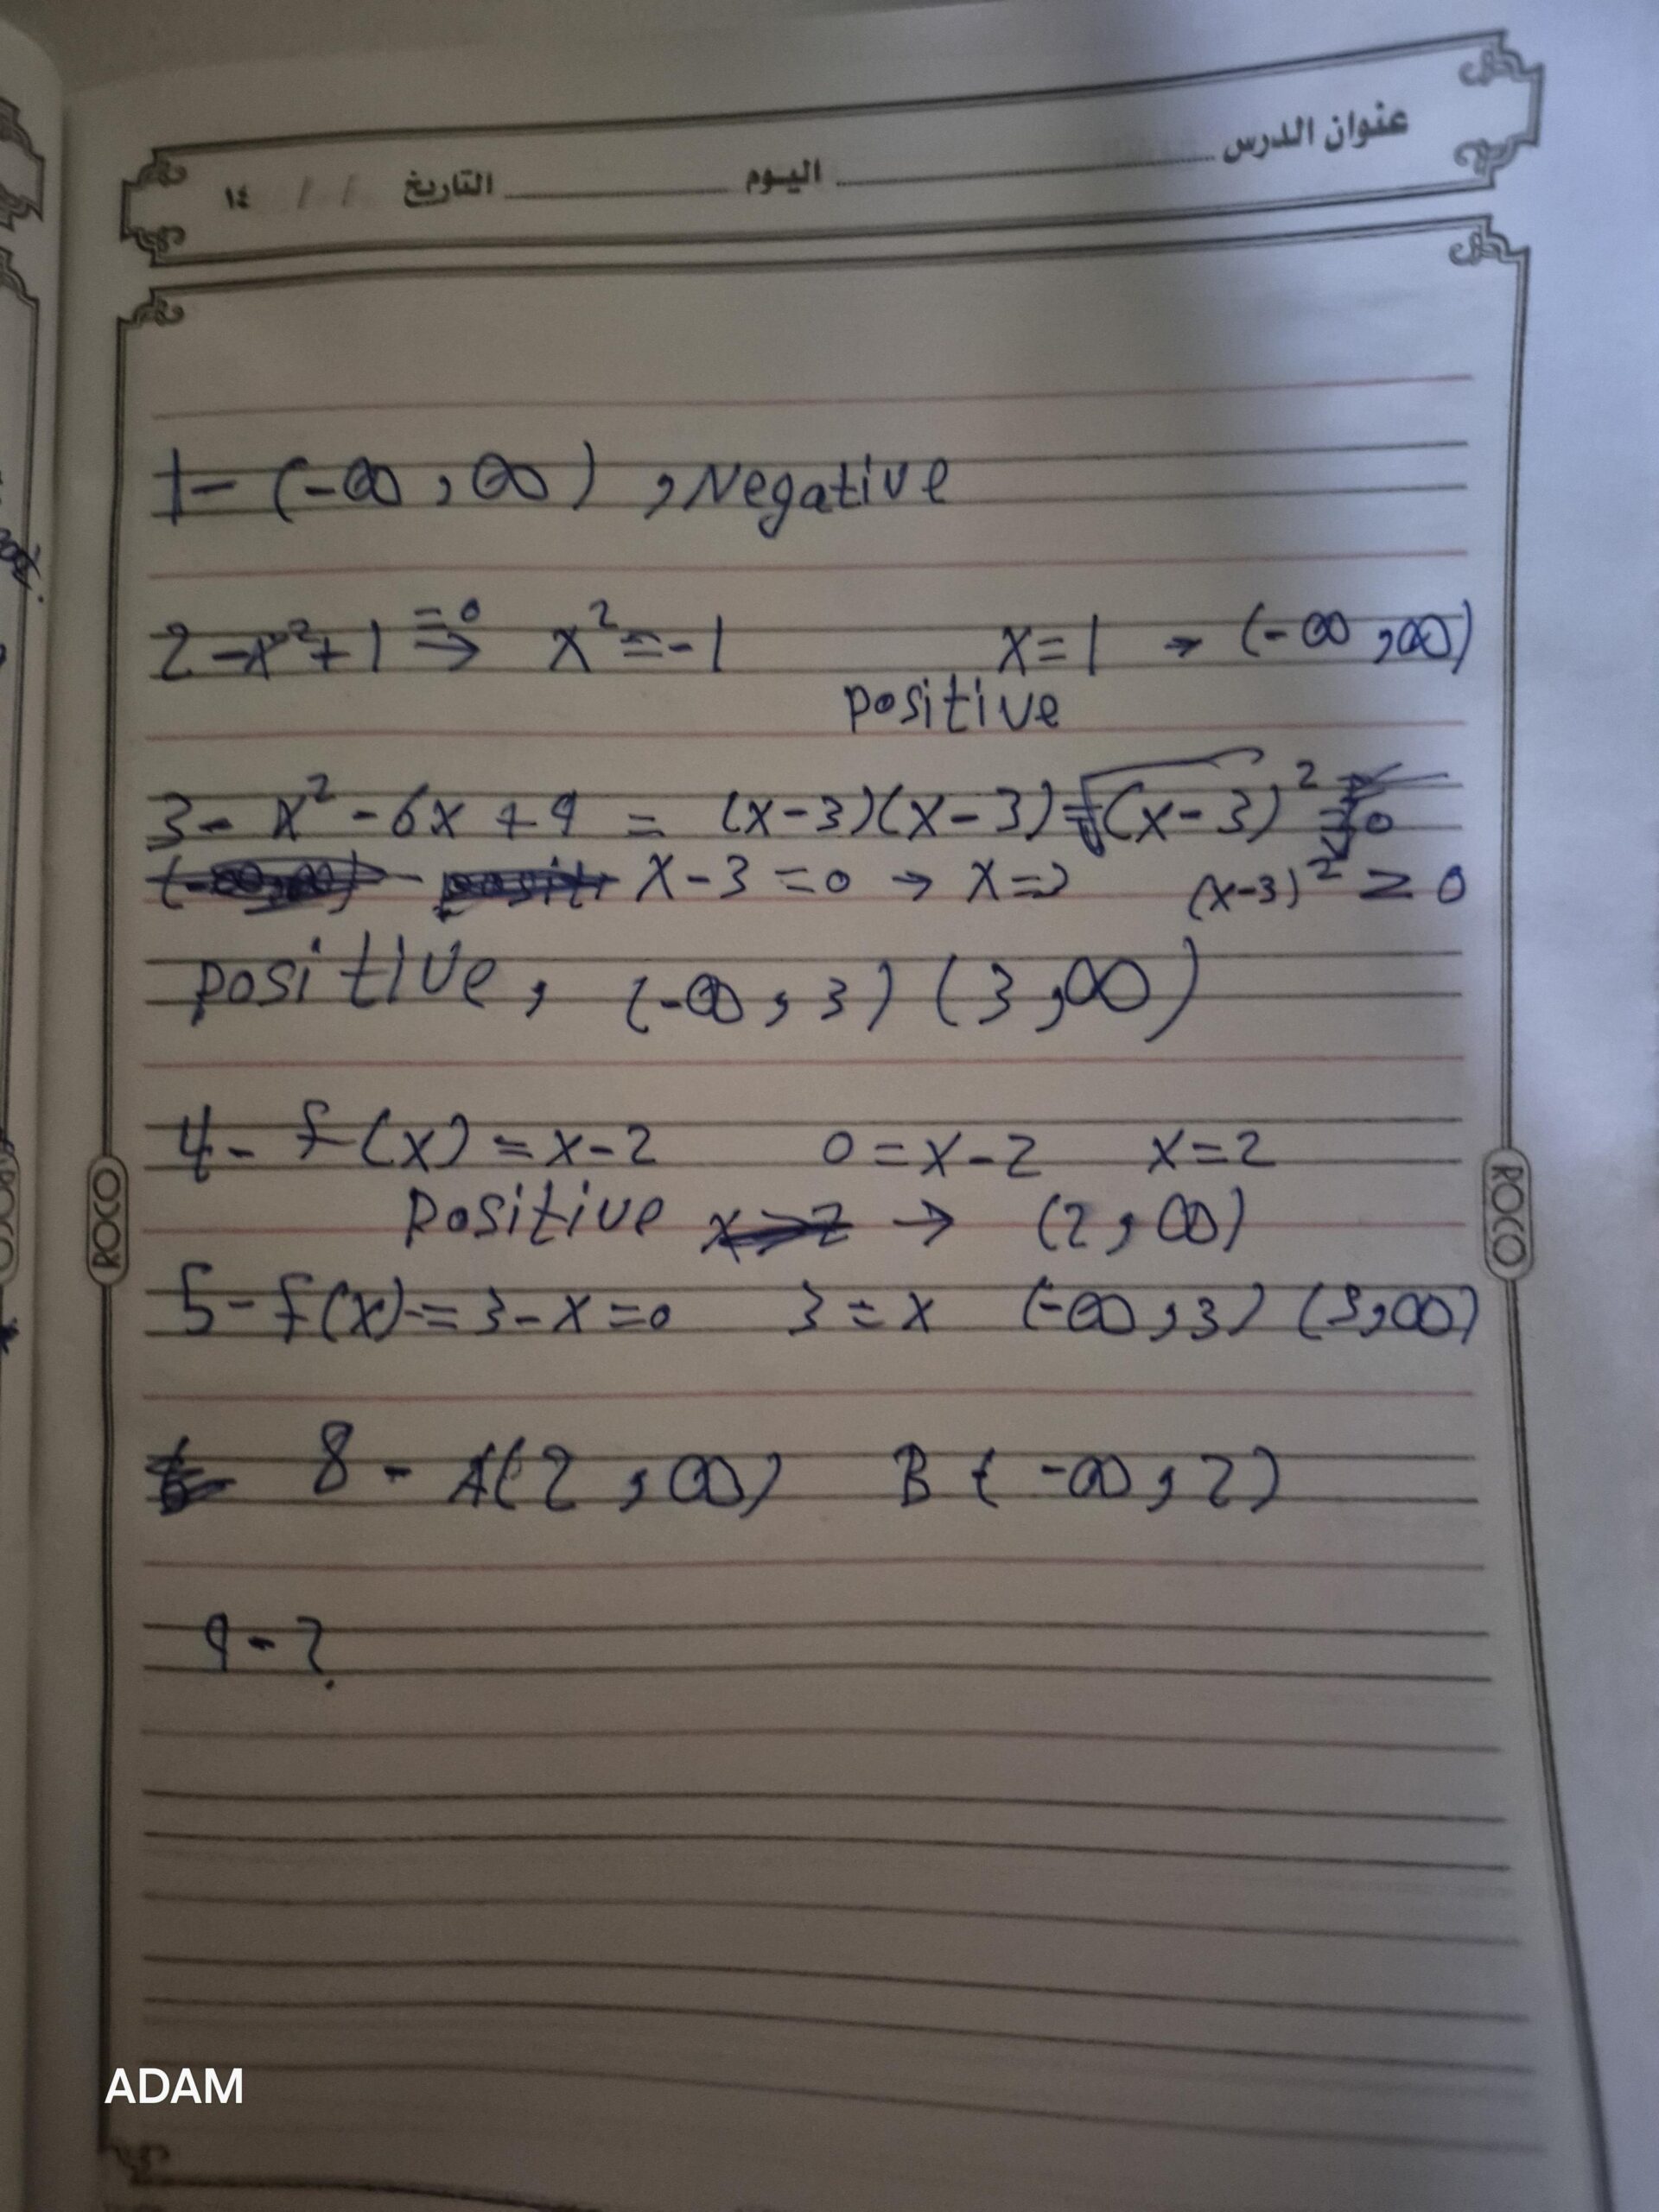 عنوان الدرس اليوم التاريخ / / ١٤
1- (-∞ , ∞) , Negative
2 - x²+1 =0 ⇒ x² = -1 x=1 → (-∞ ,∞)
positive
3- x² - 6x + 9 = (x-3)(x-3) = √(x-3)²
x-3 =0 → x=3 (x-3)² ≥ 0
positive , (-∞ , 3) (3 ,∞)
4- f(x) = x-2 0 = x-2 x=2
positive → (2 , ∞)
5- f(x) = 3-x =0 3 = x (-∞ , 3) (3,∞)
8 - A(2 , ∞) B (-∞ , 2)
9 - ?
ROCO
ROCO
ADAM